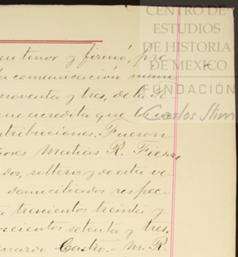 CENTRO DE
ESTUDIOS
DE HISTORIA
DE MÉXICO
FUNDACIÓN
Carlos Slim
en tenor y firmó, por
la comunicacion nume
noventa y tres, de la
que acredita que
ntribuciones. Fueron
ores Matias R.
dos, soltero y de esta ve
domiciliados respec
trescientos treinta y
scientos setenta y tres.
Castro. M. R.